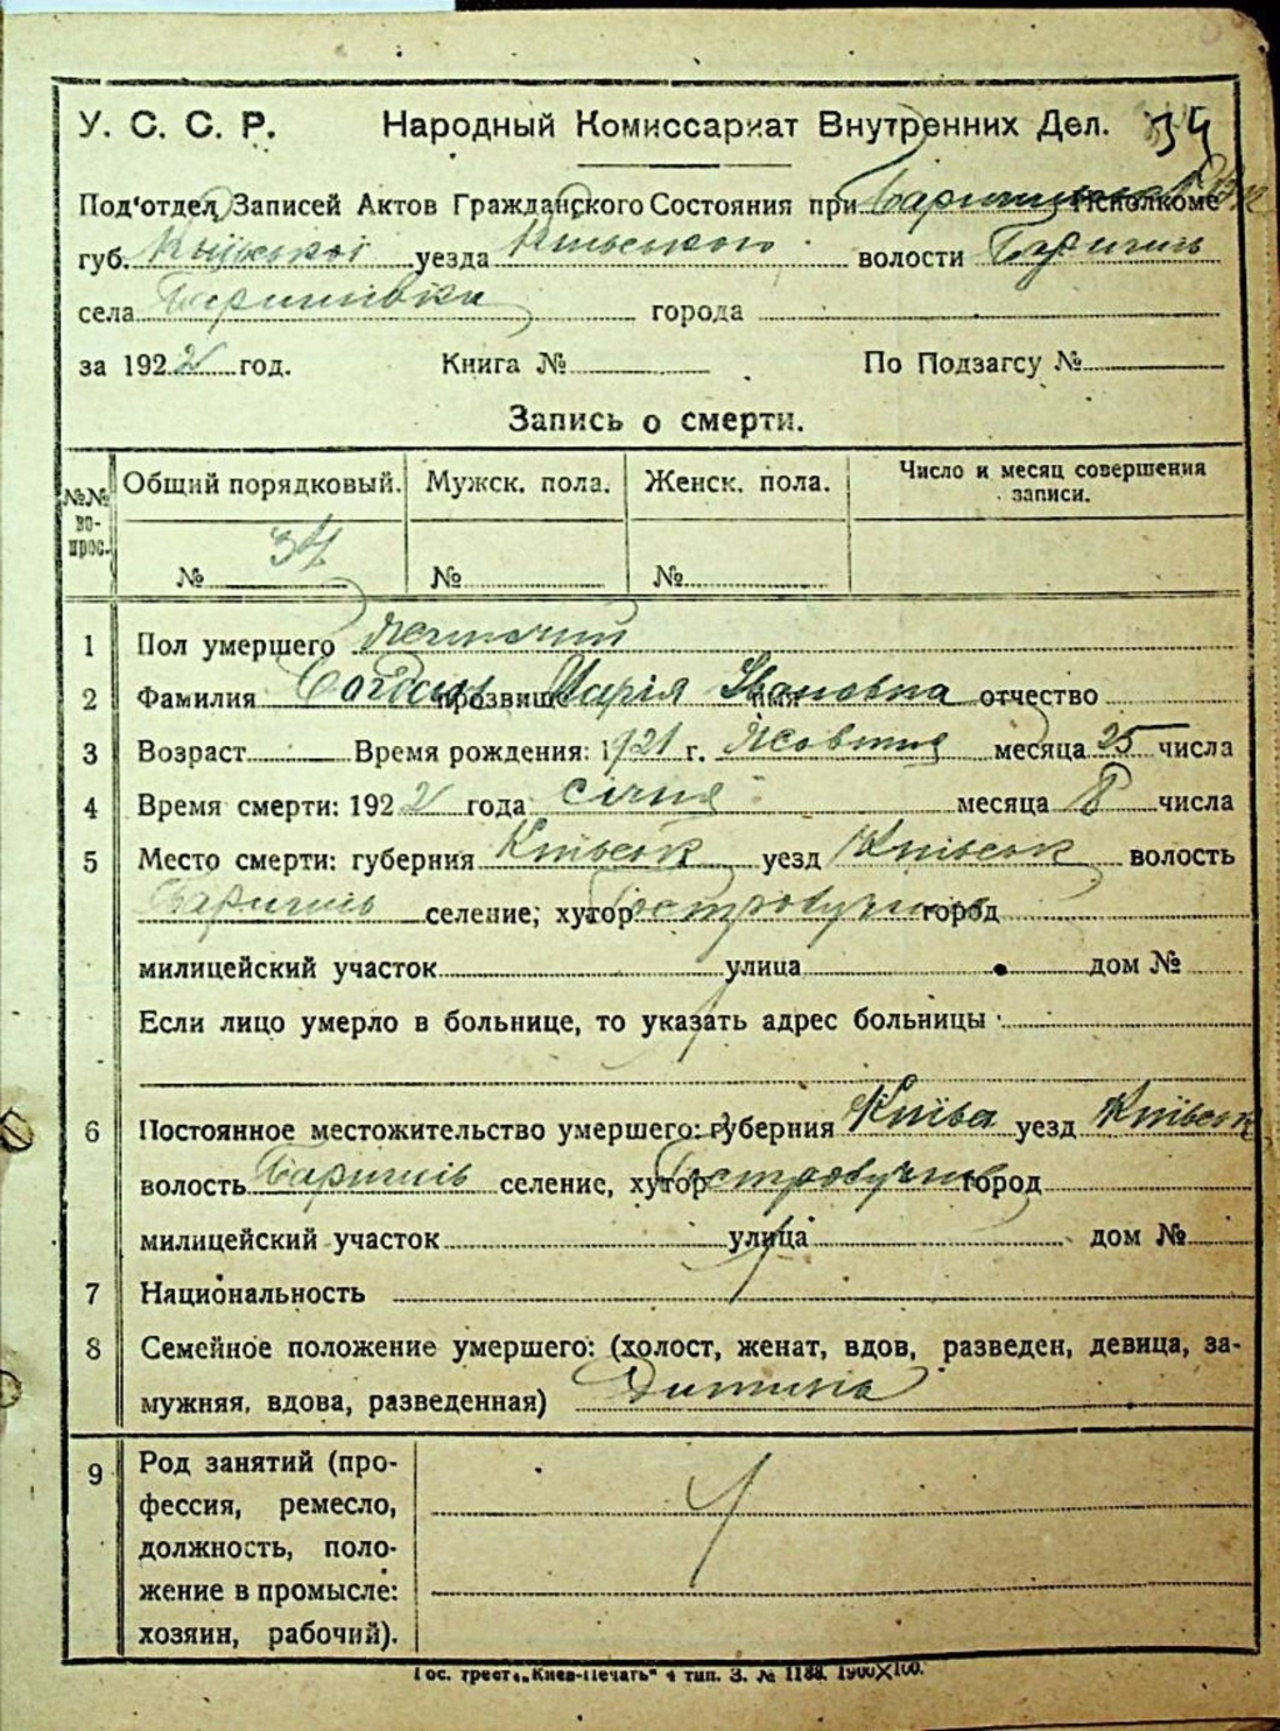 У. С. С. Р. Народный Комиссариат Внутренних Дел. 34
Под'отдел Записей Актов Гражданского Состояния при Исполкоме
губ. Київської уезда Київського волости Бариш
села Баришівки города
за 1922 год. Книга № По Подзагсу №
Запись о смерти.
№№ вопрос. Общий порядковый. Мужск. пола. Женск. пола. Число и месяц совершения записи.
№ 34 № №
1 Пол умершего Жіночий
2 Фамилия прозвище Марія имя Івановна отчество
3 Возраст Время рождения: 1921 г. Жовтня месяца 25 числа
4 Время смерти: 1922 года січня месяца 8 числа
5 Место смерти: губерния Київськ уезд Київськ волость
селение, хутор город
милицейский участок улица дом №
Если лицо умерло в больнице, то указать адрес больницы
6 Постоянное местожительство умершего: губерния Київськ уезд Київськ
волость селение, хутор город
милицейский участок улица дом №
7 Национальность
8 Семейное положение умершего: (холост, женат, вдов, разведен, девица, за-
мужняя, вдова, разведенная) Дитина
9 Род занятий (про-
фессия, ремесло,
должность, поло-
жение в промысле:
хозяин, рабочий).
Гос. трест „Киев-Печать" 4 тип. З. № 1188. 1900×100.